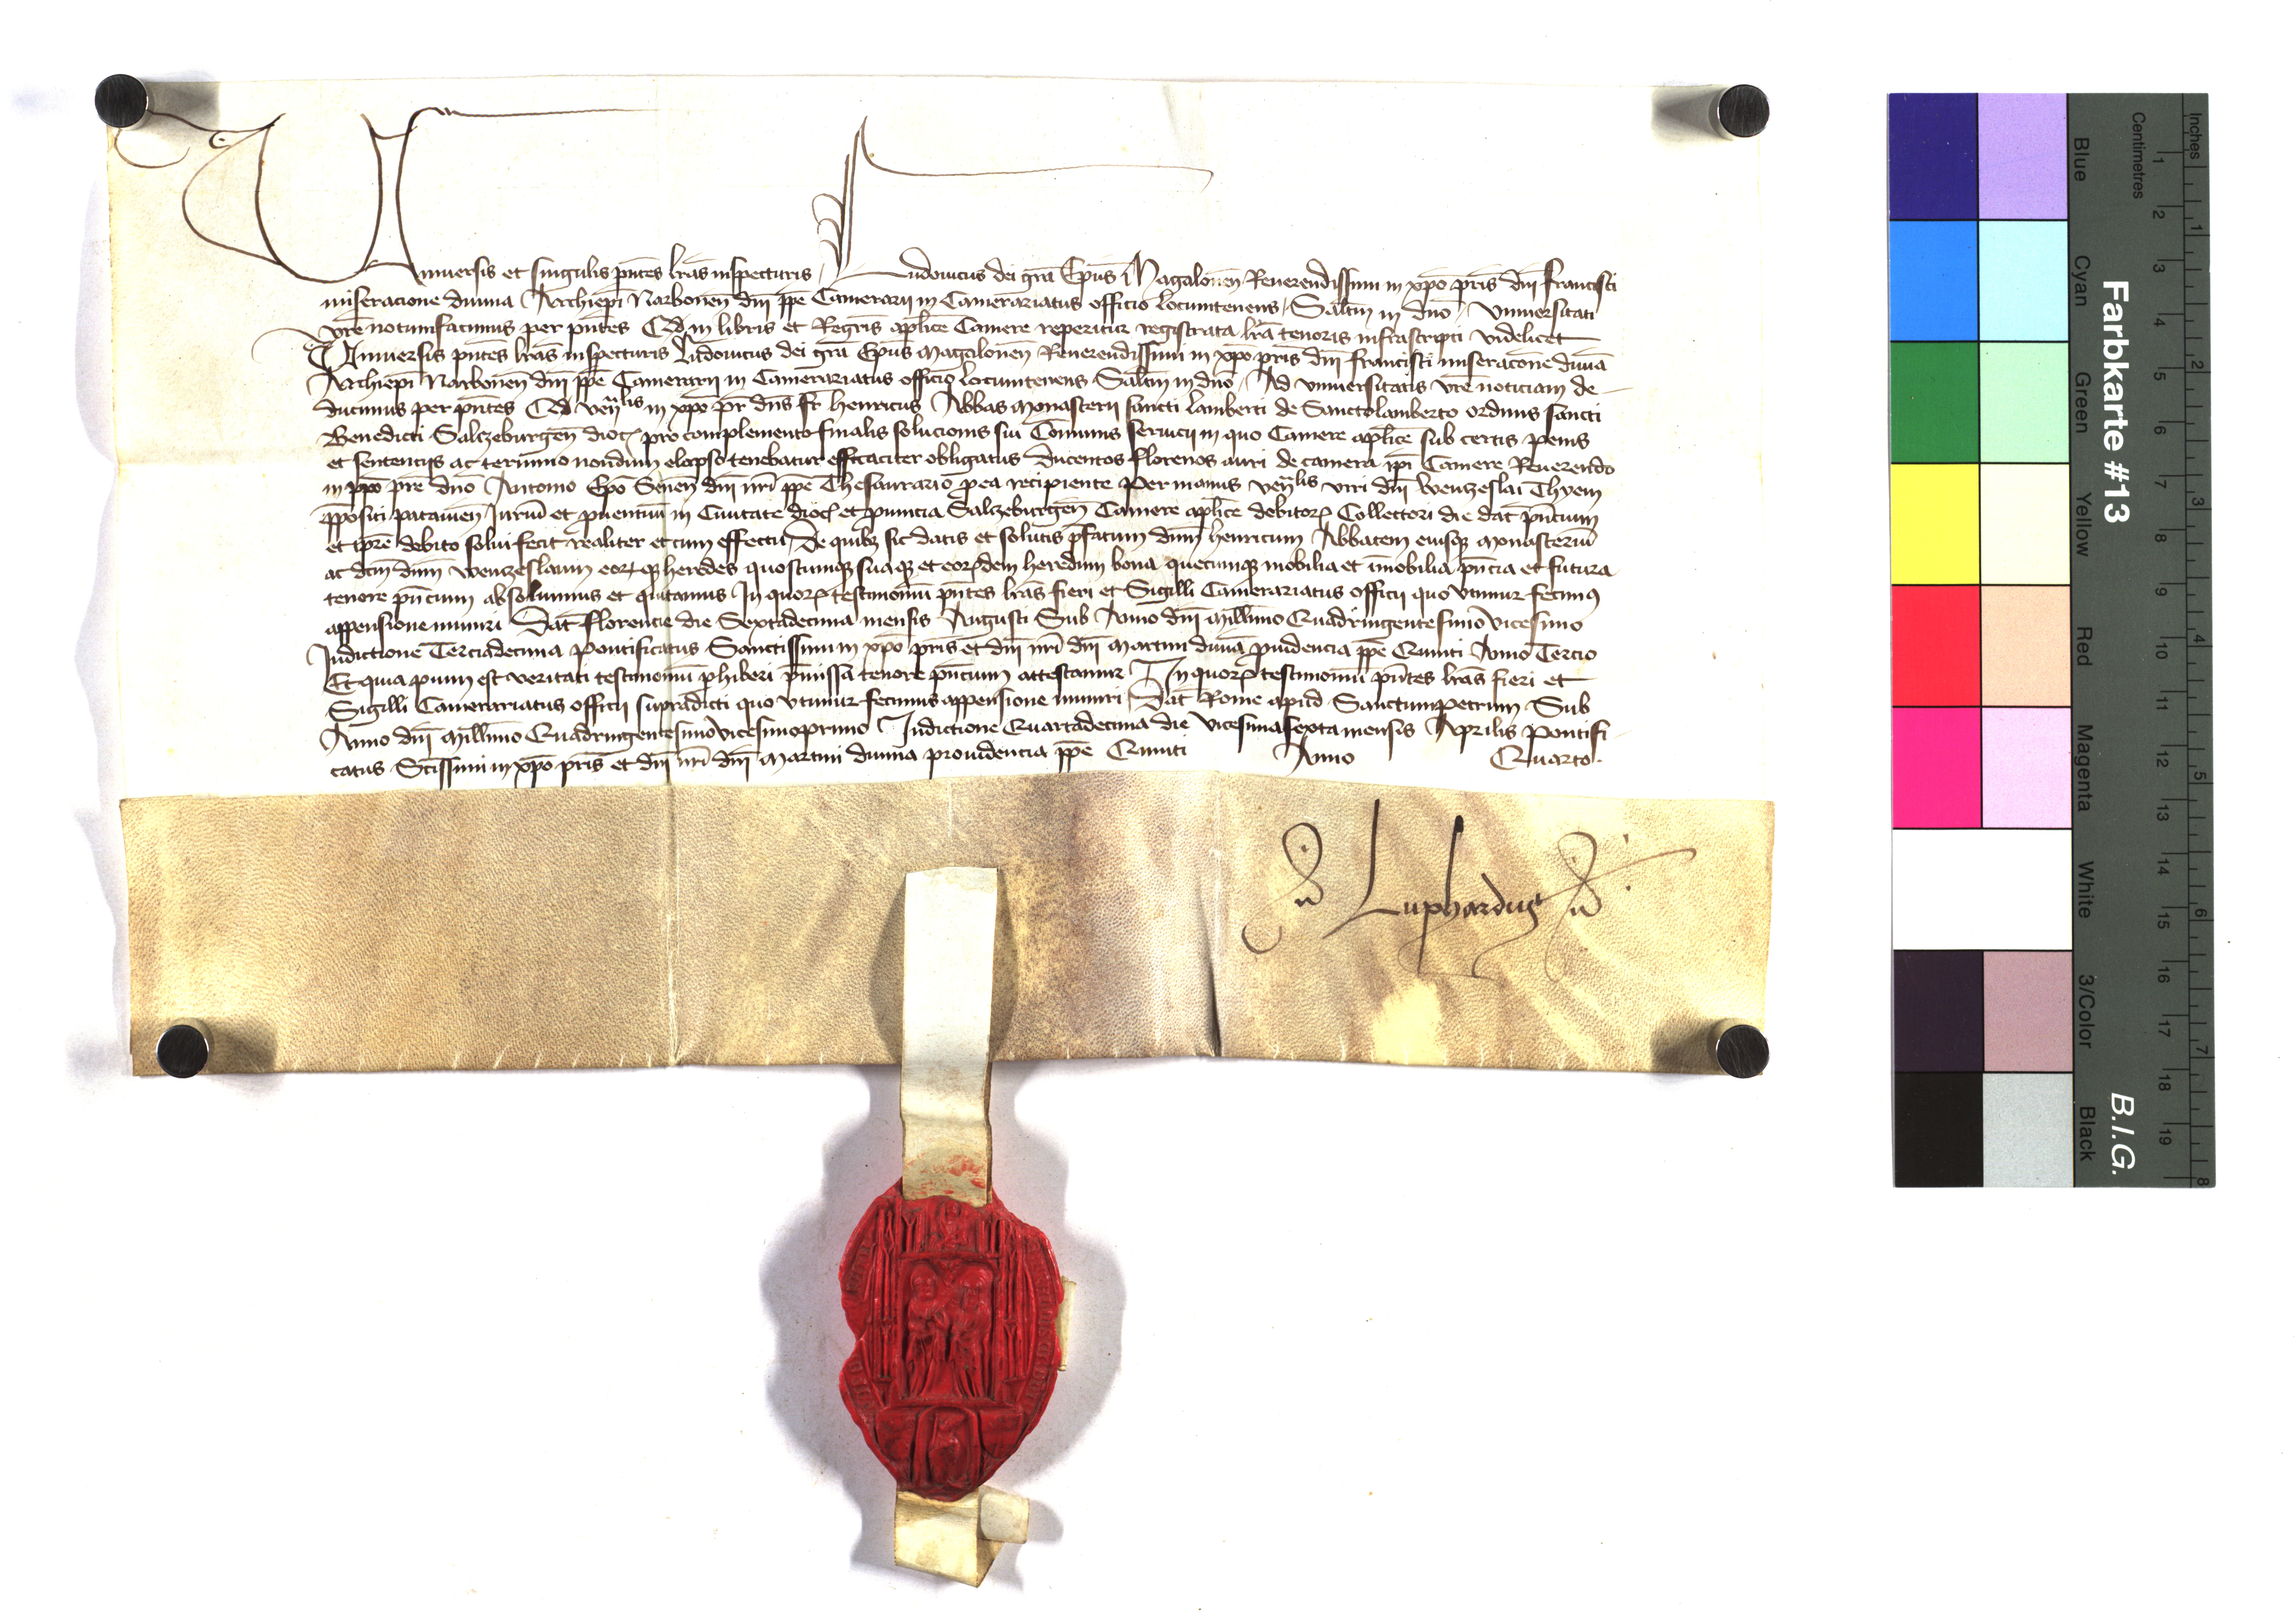 Vniuersis et singulis pntes lras inspecturis Ludouicus dei gra Epus Magalonen Reuerendissimi in xpo pris dni francisci
miseracione diuina Archiepi Narbonen dni ppe Camerarii in Camerariatus officio locumtenens Saltm in dno Vniuersitati
vre notumfacimus per pntes Qd in libris et Regris aplice Camere reperitur registrata lra tenoris infrascripti videlicet
Vniuersis pntes lras inspecturis Ludouicus dei gra Epus Magalonen Reuerendissimi in xpo pris dni francisci miseracone diuia
Archiepi Narbonen dni ppe Camerarii in Camerariatus officio locumtenens Saltm in dno Ad vniuersitatis vre noticiam de-
ducimus per pntes Qd venlis in xpo pr dns fr henricus Abbas Monasterii sancti lamberti de Sanctolamberto ordinis sancti
Benedicti Salczeburgen dioc pro complemento finalis solucionis sui Comunis seruicii in quo Camere aplice sub certis penis
et sentencijs ac termino nondum elapso tenebatur efficaciter obligatus ducentos florenos auri de camera ipi Camere Reuerendo
in xpo pre dno Antonio Epo Senen dni nri ppe Thesaurario pea recipiente per manus venlis viri dni Wenczeslai Thyem
ppositi patauien Iurium et puentuum in Ciuitate dioc et puincia Salczeburgen Camere aplice debitor Collectori die dat pncium
et ipre debito solui fecit realiter et cum effectu De quibz sic datis et solutis pfatum dnm henricum Abbatem eiusqz monasteriu
ac dcm dnm Wenczeslaum eorqz heredes quoscumqz suaqz et eordem heredum bona quecumqz mobilia et imobilia pncia et futura
tenore pncium absoluimus et quitamus In quor testimoniu pntes lras fieri et Sigilli Camerariatus officii quo vtimur fecimus
appensione muniri Dat florencie die Sextadecima mensis Augusti Sub Anno dni Millimo Quadringentesimo vicesimo
Indictione Terciadecima pontificatus Sanctissimi in xpo pris et dni nri dni Martini diuia puidencia ppe Quinti Anno Tercio
Et quia pium est veritati testimoniu phiberi pmissa tenore pncium attestamur In quor testimoniu pntes lras fieri et
Sigilli Camerariatus officii supradicti quo vtimur fecimus appensione muniri Dat Rome apud Sanctumpetrum Sub
Anno dni Millimo Quadringentesimo vicesimoprimo Indictione Quartadecima die vicesimasexta mensis Aprilis Pontifi-
catus Sctissimi in xpo pris et dni nri dni Martini diuina prouidencia ppe Quinti Anno Quarto.
Luphardus
Inches 1 2 3 4 5 6 7 8
Centimetres 1 2 3 4 5 6 7 8 9 10 11 12 13 14 15 16 17 18 19
Farbkarte #13
B.I.G.
Blue Cyan Green Yellow Red Magenta White 3/Color Black